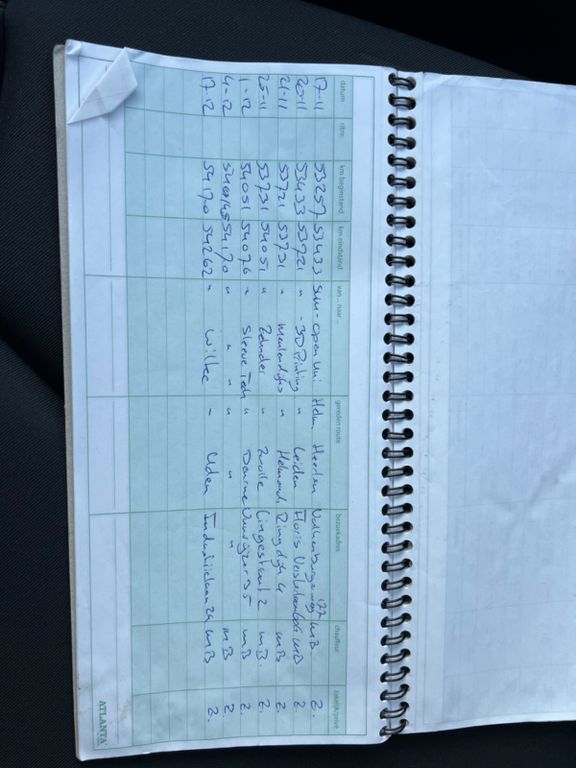 datum ritnr. km beginstand km eindstand van .. naar .. gereden route bezoekadres chauffeur zakelijk/privé
17-11 53257 53433 - open Uni Heerlen Valkenburgerweg 177 MB Z.
20-11 53433 53721 " - 3D Printing " Leiden Floris MB Z.
21-11 53721 53731 " " Helmond MB Z.
25-11 53731 54051 " Zehnder " Zwolle Lingenstraat 2 MB. Z.
1-12 54051 54076 " Sleeve Tech " Deurne 35 MB Z.
4-12 54170 " " " " " " MB Z
17-12 54170 54262 " Wilbee " Uden Industrielaan 24 MB Z.
ATLANTA